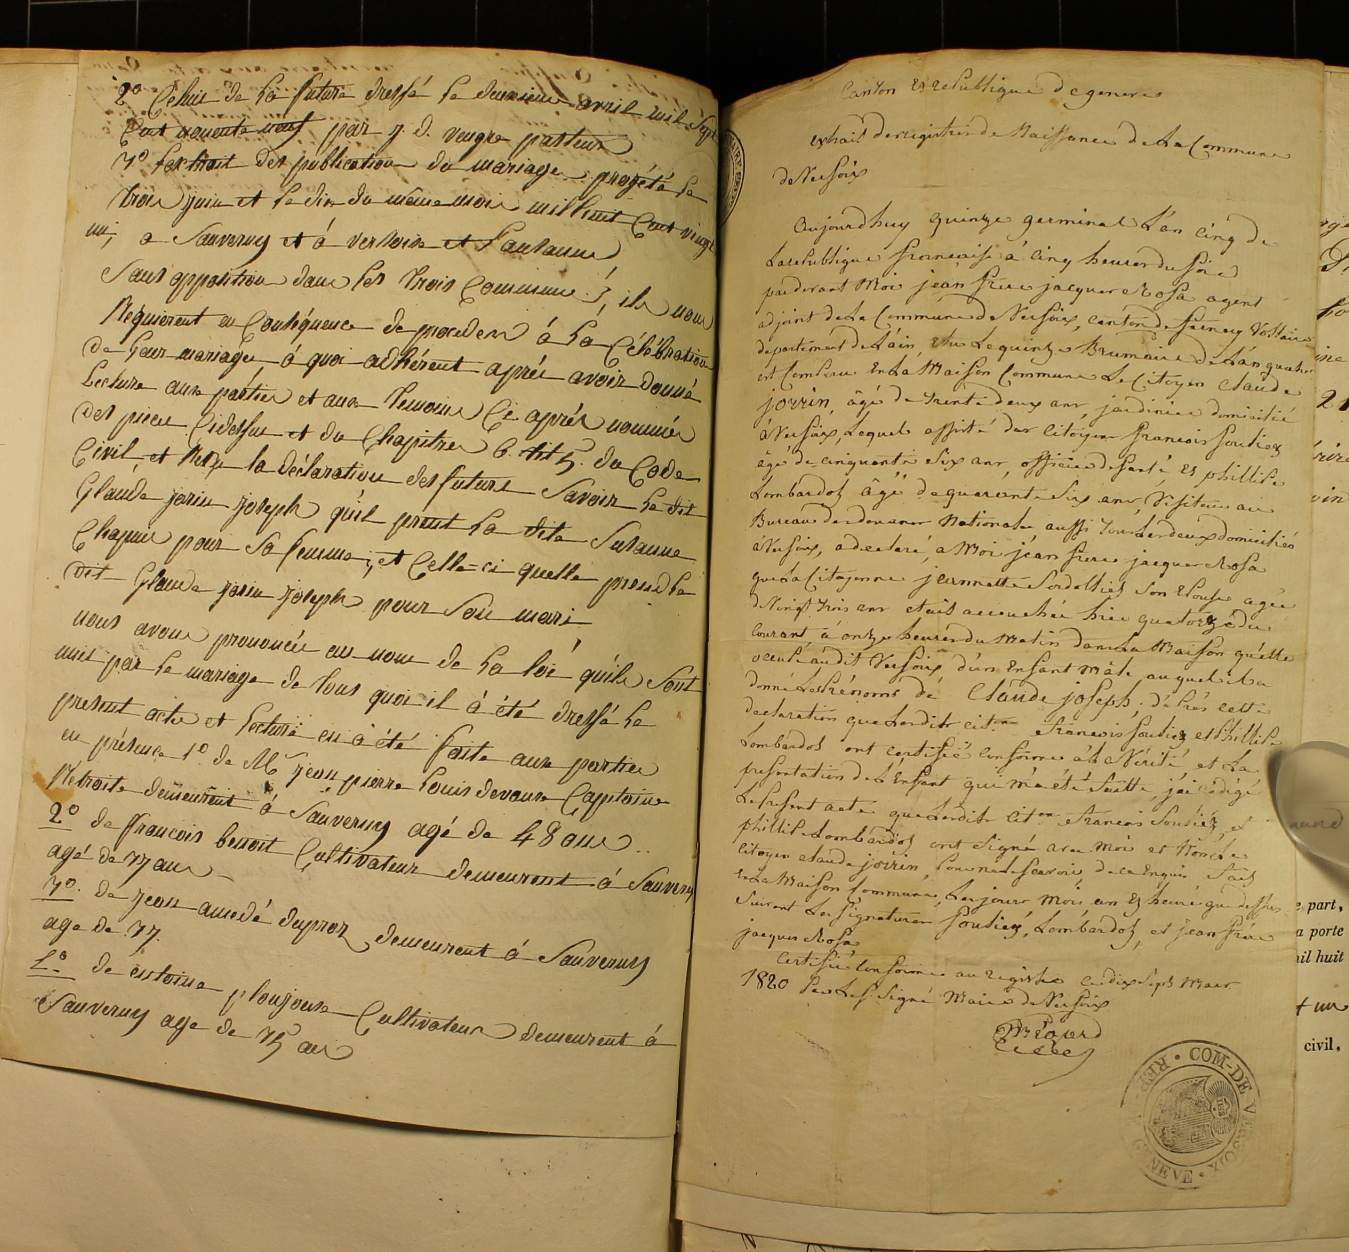 2º Celui de la future dressé le deuxieme avril mil sept
Cent nonente neuf par J. D. Vengre pasteur
3º Lextrait des publication du mariage progété le
trois juin et le dix du même mois mil huit Cent vingt
un, a Sauverny et á Versoix et Lausanne
Sans opposition dans les trois Commune ; ils nous
Requierent en Conséquence de proceder á la Célébration
de leur mariage á quoi adhérent aprés avoir donné
Lecture aux partie et aux temoins Ci aprés nommée
des piece Cidessus et du Chapitre 6. tit 5. du Code
Civil et Reçu la déclaration des futurs Savoir le dit
Glaude jorin joseph qu'il prent la dite Susanne
Chapuis pour Sa femme, et Celle-ci quelle prend le
dit Glaude jorin joseph pour Son mari
nous avons prononcée au nom de la loi qu'ils Sont
unis par le mariage de tous quoi il á été dressé le
present acte et lecture en á été faite aux partie
en présence 1º de Mr jean pierre Louis devoux Capitaine
Retraite demeurent á Sauverny agé de 48 ans
2º de francois benoit Cultivateur demeurent á Sauverny
agé de 33 ans
3º. de jean amedé duproz demeurent á Sauverny
age de 33.
4º de entoine ploujoux Cultivateur demeurent á
Sauverny age de 35 ans
Canton Et republique de geneve
extrait des registres de Naissance de La Commune
de Versoix
Aujourdhuy quinze germinal L'an cinq de
La republique francaise á Cinq heures du Soir
pardevant Moi jean frere jacques Rosa agent
adjoint de La Commune de Versoix, canton de fernex Voltaire
departement de L'ain elu Le quinze Brumaire de L'an quatre
est Comparu En La Maison Commune Le Citoyen Claude
jorrin, âgé de trente deux ans, jardinier domicilié
á Versoix, Lequel assisté des Citoyens francois Soutiez
âgé de cinquante Six ans, officier de Santé, Et phillipe
Lombardoz âgé de quarante Six ans, Visiteur au
Bureau des douanes Nationales, aussi tous Les deux domiciliés
á Versoix, a declaré, a Moi jean frere jacques Rosa
que La Citoyenne jeannette Sordelliet Son Epouse agée
de Vingt trois ans etait accouchée hier quatorze du
Courant á onze heures du Matin dans La Maison qu'elle
occupe au dit Versoix d'un Enfant Mâle, auquel il a
donné Les Prénoms de Claude joseph, d'aprés cette
declaration que Lesdits citens francois Soutiez et Phillipe
Lombardoz ont certifié Conforme á la Vérité et La
presentation de L'Enfant qui m'a été faitte, jai redigé
Le Present acte que Lesdits citens francois Soutiez, et
phillipe Lombardoz ont signé avec moi et Non Le
Citoyen claude jorrin, Pour ne le scavoir, de ce Enquis fait
En La Maison Commune, Les jours Mois an Et heure que dessus
Suivent Les Signatures Soutiez, Lombardoz et jean frere
jacques Rosa
Certifié Conforme au registre Ce dix Sept Mars
1820 Par Le Signé Maire de Versoix
e part,
a porte
mil huit
civil.
REP. COM-DE VERSOIX
GENEVE